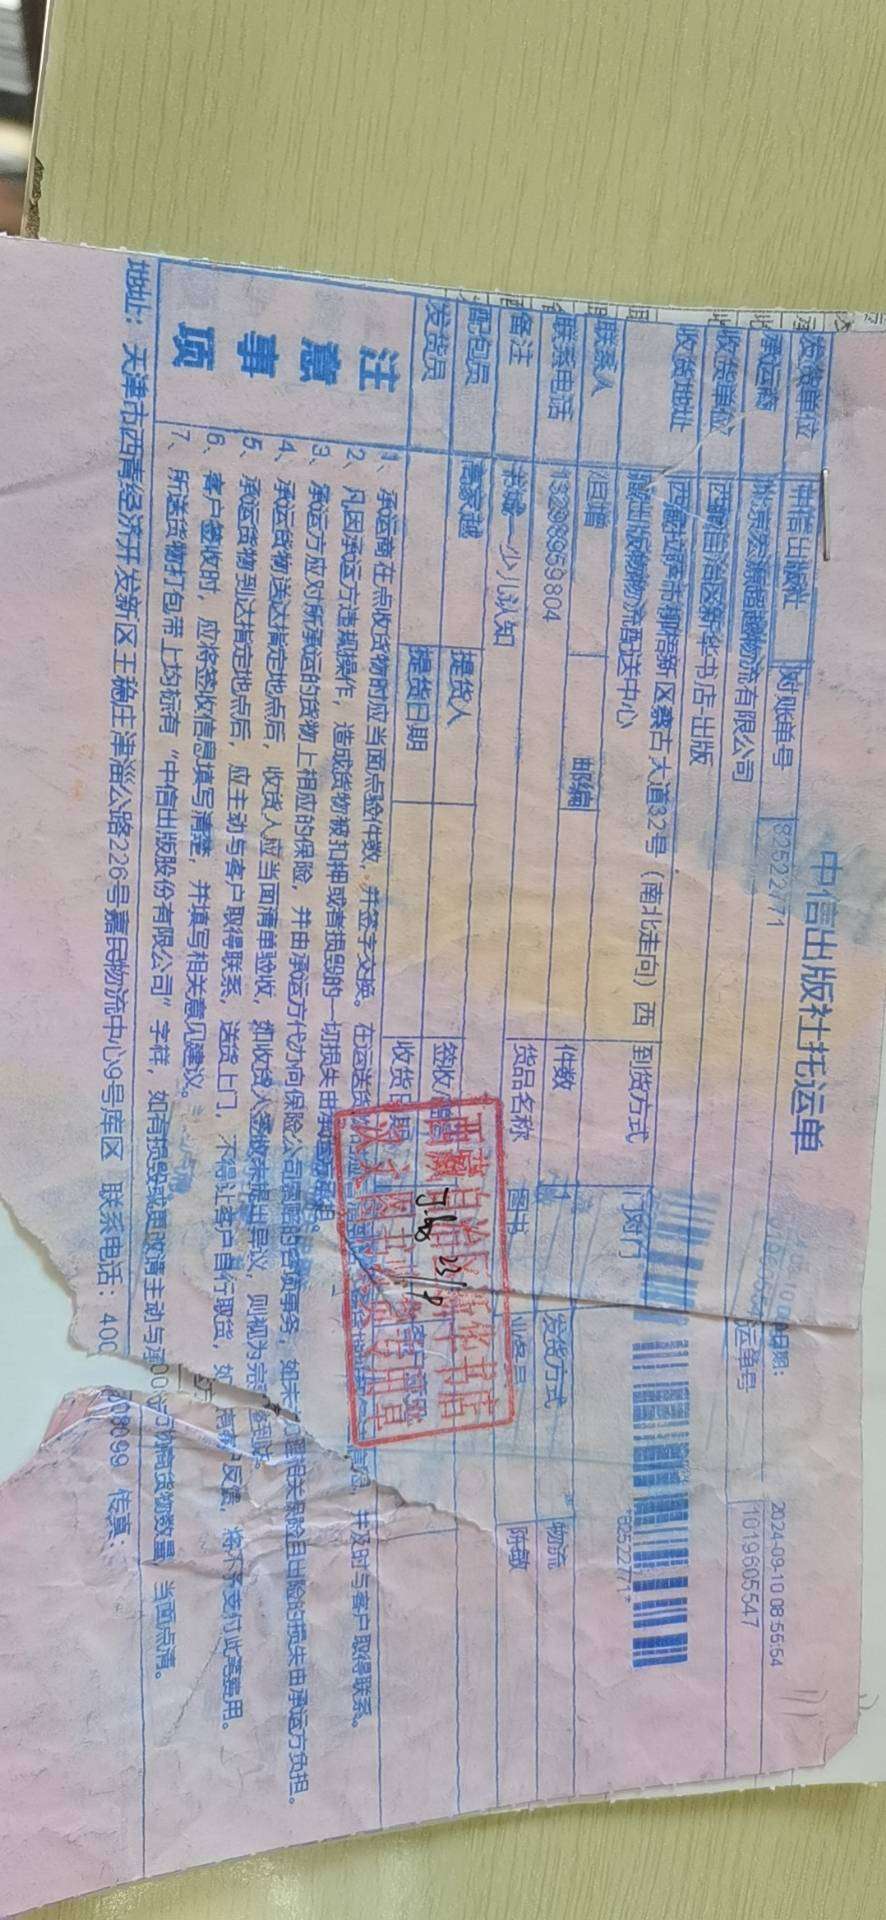 中信出版社托运单
日期: 2024-09-10 08:55:54
发货单位 中信出版社 对账单号 82522771 运单号 1019605547
承运商 物流有限公司
收货单位 西藏自治区新华书店出版
收货地址 西藏拉萨市柳梧新区蒙古大道32号（南北走向）西 到货方式 门对门
藏出版物物流配送中心
*82522771*
联系人 邮编
联系电话 13298959804 件数 发货方式 物流
备注 书城--少儿认知 货品名称 图书 业务员
配包员 提货人 签收
发货员 提货日期 收货日期
西藏自治区新华书店
注意事项
1、承运商在点收货物时应当面点验件数，并签字交换。在运送货 并及时与客户取得联系。
2、凡因承运方违规操作，造成货物被扣押或者损毁的一切损失由承运
3、承运方应对所承运的货物上相应的保险，并由承运方代办向保险公司索赔的各项事务，如未 相关保险且出险的损失由承运方负担。
4、承运货物送达指定地点后，收货人应当面清单验收，如收货人 未提出异议，则视为完
5、承运货物到达指定地点后，应主动与客户取得联系，送货上门，不得让客户自行取货，如 反馈，将不予支付此笔费用。
6、客户签收时，应将签收信息填写清楚，并填写相关意见建议。
7、所送货物打包带上均标有“中信出版股份有限公司”字样，如有损毁或更改请主动与 货物数量，当面点清。
地址：天津市西青经济开发新区王稳庄津淄公路226号嘉民物流中心9号库区 联系电话：400 8099 传真：